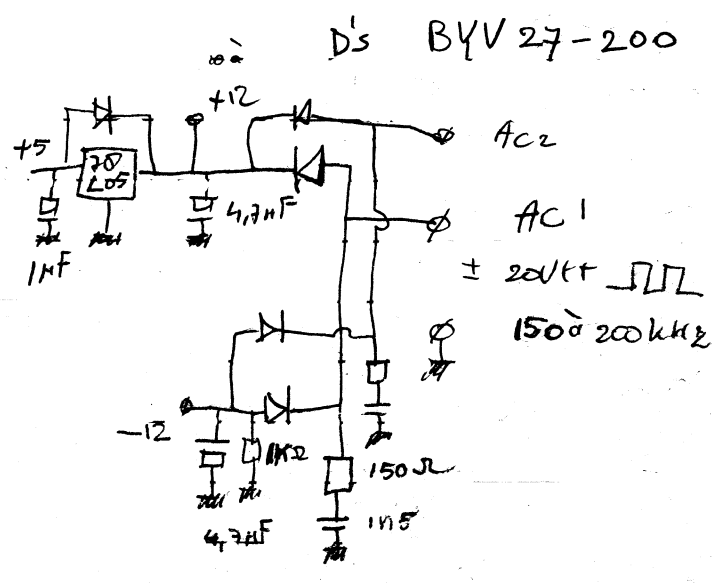 D's BYV 27-200
+12
+5
AC2
78
L05
4,7µF
AC1
1µF
± 20Vtt
150 à 200kHz
-12
1KΩ
150Ω
4,7µF
1n5